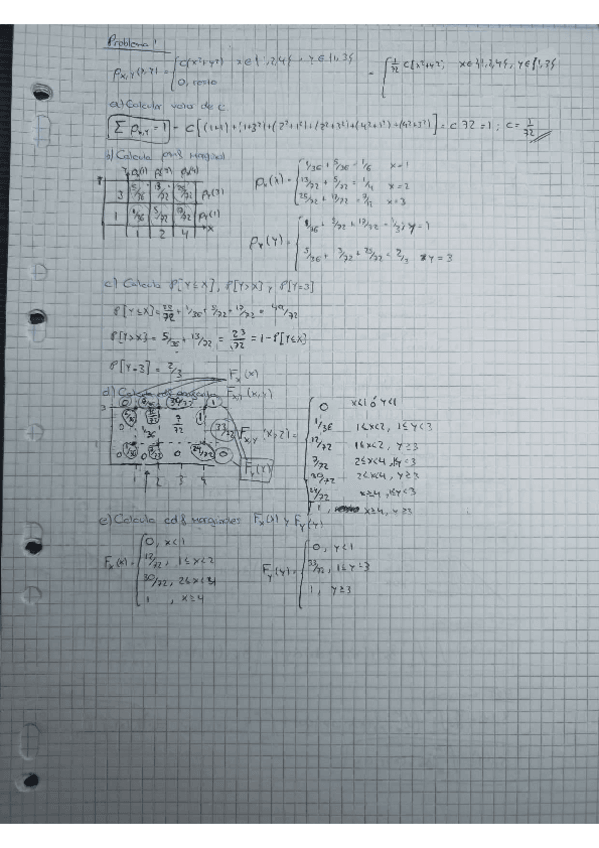 Problema 1
P_{X,Y}(x,y) = { C(x²+y²) x∈{1,2,4}, y∈{1,3} = { 1/72 C(x²+y²), x∈{1,2,4}, y∈{1,3}
0, resto
a) Calcular valor de c.
∑ P_{x,y} = 1 = C[(1+1²)+(1+3²)+(2²+1²)+(2²+3²)+(4²+1²)+(4²+3²)] = c 72 = 1; C = 1/72
b) Calcula pmf marginal
3 5/36 13/72 25/72 P_Y(3)
1 1/36 5/72 17/72 P_Y(1)
1 2 4 x
P_X(x) = { 1/36 + 5/36 = 1/6 x=1
13/72 + 5/72 = 1/4 x=2
x=3
P_Y(y) = { 1/36 + 5/72 + 17/72 = 1/3; y=1
5/36 + 25/72 = 2/3 y=3
c) Calcula P[Y≤X], P[Y>X] y P[Y=3]
P[Y≤X] = 25/72 + 1/36 + 5/72 + 17/72 = 49/72
P[Y>X] = 5/36 + 13/72 = 23/72 = 1 - P[Y≤X]
P[Y=3] = 2/3
F_X(x)
d) Calcula F_{X,Y}(x,y)
F_{X,Y} = { 0 x<1 ó y<1
1/36 1≤x<2, 1≤y<3
12/72 1≤x<2, y≥3
7/72 2≤x<4, =3
30/72 2≤x<4, y≥3
24/72 x≥4, 1≤y<3
1, x≥4, y≥3
F_Y(y)
1 2 3 4
e) Calcula cdf marginales F_X(x) y F_Y(y)
F_X(x) = { 0, x<1
12/72, 1≤x<2
30/72, 2≤x<
1, x≥4
F_Y(y) = { 0, y<1
, 1≤y=3
1, y≥3